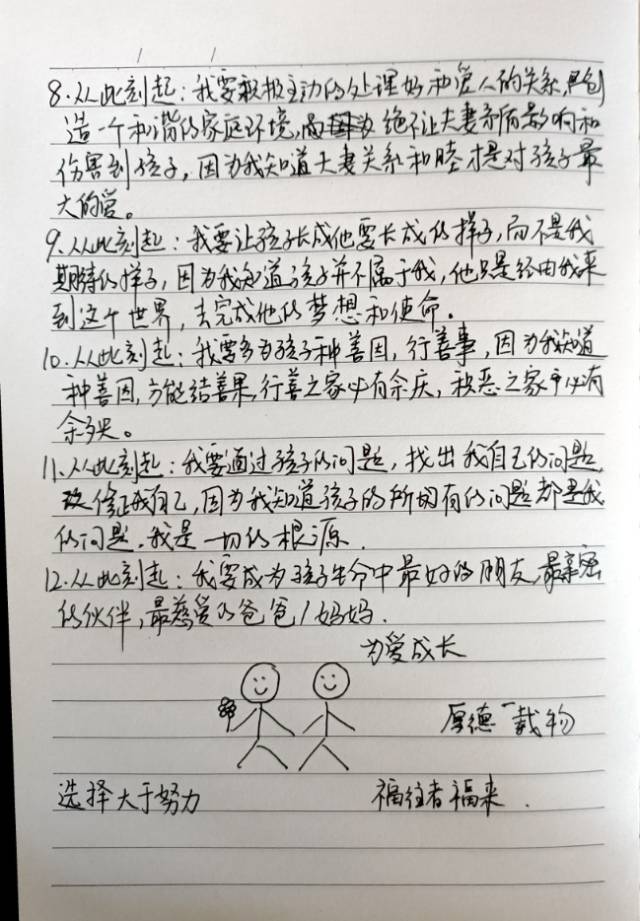 8.从此刻起：我要积极主动的处理好和爱人的关系,创
造一个和谐的家庭环境,绝不让夫妻矛盾影响和
伤害到孩子，因为我知道夫妻关系和睦才是对孩子最
大的爱。
9.从此刻起：我要让孩子长成他要长成的样子,而不是我
期待的样子，因为我知道孩子并不属于我,他只是经由我来
到这个世界，去完成他的梦想和使命.
10.从此刻起：我要多为孩子种善因，行善事，因为我知道
种善因,方能结善果,行善之家必有余庆，积恶之家必有
余殃。
11.从此刻起：我要通过孩子的问题，找出我自己的问题,
修正我自己,因为我知道孩子的所有的问题都是我
的问题.我是一切的根源.
12.从此刻起：我要成为孩子生命中最好的朋友,最亲密
的伙伴，最慈爱的爸爸/妈妈.
为爱成长
厚德载物
选择大于努力 福往者福来.